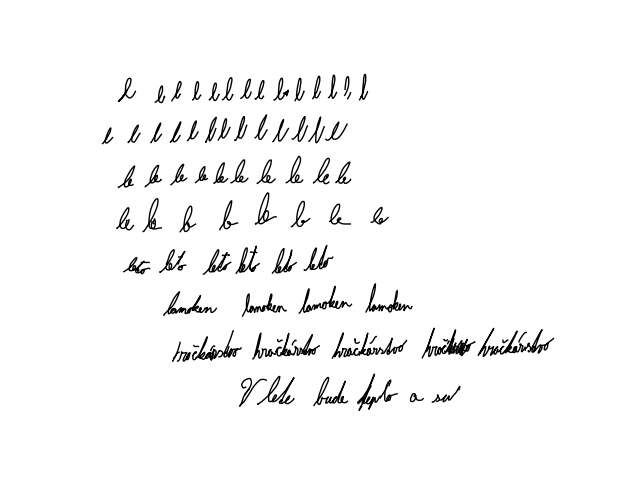 l l l l l l l l l l l l l l
l l l l l l l l l l l l l l
le le le le le le le le le le
le le le le le le le le
leto leto leto leto leto leto
lamoken lamoken lamoken lamoken
hračkárstvo hračkárstvo hračkárstvo hračkárstvo
V lete bude teplo a su